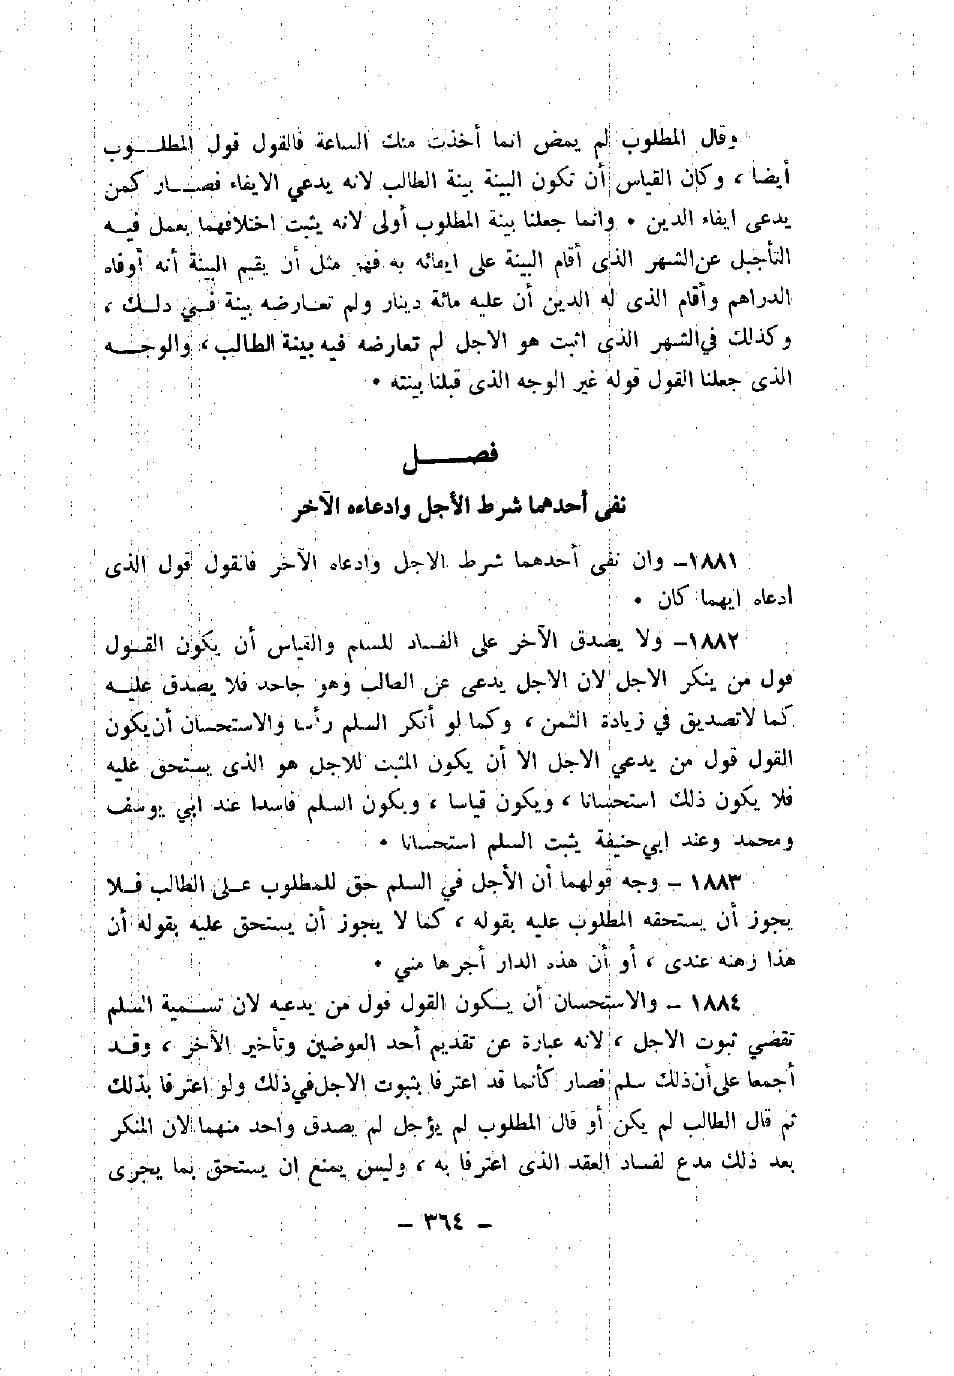 وقال المطلوب لم يمض انما أخذت منك الساعة فالقول قول المطلــوب
أيضا ، وكان القياس أن تكون البينة بينة الطالب لانه يدعي الايفاء فصــار كمن
يدعى ايفاء الدين • وانما جعلنا بينة المطلوب أولى لانه يثبت اختلافهما بعمل فيــه
التأجيل عن الشهر الذى أقام البينة على ايفائه به فهو مثل أن يقيم البينة أنه أوفاه
الدراهم وأقام الذى له الدين أن عليه مائة دينار ولم تعـارضه بينة فـي دلـك ،
وكذلك في الشهر الذى اثبت هو الاجل لم تعارضه فيه بينة الطالب ، والوجــه
الذى جعلنا القول قوله غير الوجه الذى قبلنا بينته •
فصــــل
نفى أحدهما شرط الأجل وادعاءه الآخر
١٨٨١ـ وان نفى أحدهما شرط الاجل وادعاه الآخر فالقول قول الذى
ادعاه ايهما كان •
١٨٨٢ـ ولا يصدق الآخر على الفساد للسلم والقياس أن يكون القـول
قول من ينكر الاجل لان الاجل يدعى عن الطالب وهو جاحد فلا يصدق عليـه
كما لا تصديق في زيادة الثمن ، وكما لو أنكر السلم رأسا والاستحسان أن يكون
القول قول من يدعي الاجل الا أن يكون المثبت للاجل هو الذى يستحق عليه
فلا يكون ذلك استحسانا ، ويكون قياسا ، ويكون السلم فاسدا عند ابي يوسف
ومحمد وعند ابي حنيفة يثبت السلم استحسانا •
١٨٨٣ ـ وجه قولهما أن الأجل في السلم حق للمطلوب عـلى الطالب فـلا
يجوز أن يستحقه المطلوب عليه بقوله ، كما لا يجوز أن يستحق عليه بقوله أن
هذا رهنه عندى ، أو أن هذه الدار أجرها مني •
١٨٨٤ ـ والاستحسان أن يـكون القول قول من يدعيه لان تسـمية السلم
تقضي ثبوت الاجل ، لانه عبارة عن تقديم أحد العوضين وتأخير الآخر ، وقـد
أجمعا على أن ذلك سلم فصار كأنما قد اعترفا بثبوت الاجل في ذلك ولو اعترفا بذلك
ثم قال الطالب لم يكن أو قال المطلوب لم يؤجل لم يصدق واحد منهما لان المنكر
بعد ذلك مدع لفساد العقد الذى اعترفا به ، وليس يمنع ان يستحق بما يجرى
ـ ٣٦٤ ـ